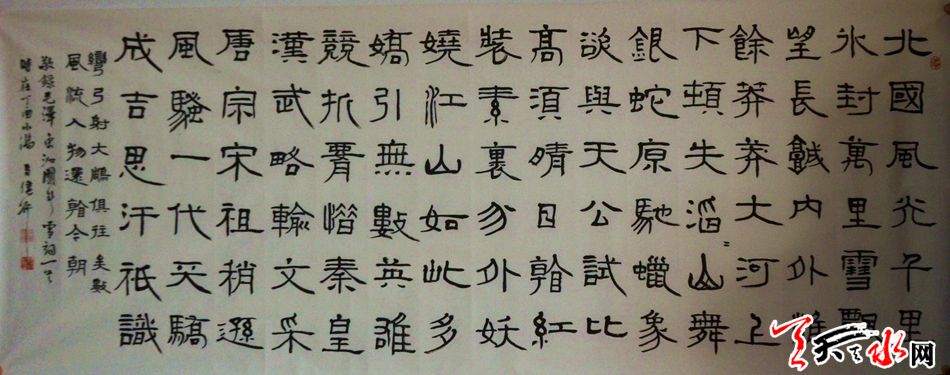 北國風光千里
氷封萬里雪飄
望長城内外雖
餘莽莽大河上
下頓失滔〻山舞
銀蛇原馳蠟象
欲與天公試比
髙須晴日看紅
裝素裹分外妖
嬈江山如此多
嬌引無數英雄
競折腰惜秦皇
漢武略輸文采
唐宗宋祖稍遜
風騷一代天驕
成吉思汗祇識
彎弓射大鵰俱往矣數
風流人物還看今朝
敬錄毛澤東沁園春雪詞一首
時在丁酉小滿
天天水网